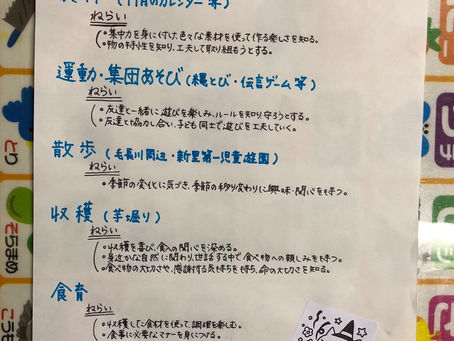 (十月のカレンダー 等)
ねらい
。集中力を身に付け、色々な素材を使って作る楽しさを知る。
。物の特性を知り、工夫して取り組もうとする。
運動・集団あそび(縄とび・伝言ゲーム 等)
ねらい
。友達と一緒に遊びを楽しみ、ルールを知り、守ろうとする。
。友達と協力し合い、子ども同士で遊びを工夫していく。
散歩(毛長川周辺・新里第一児童遊園)
ねらい
。季節の変化に気づき、季節の移り変わりに興味・関心をもつ。
収穫(芋堀り)
ねらい
。収穫を喜び、食への関心を深める。
。身近な自然に関わり、世話する中で食べ物への親しみを持つ。
。食べ物の大切さや、感謝する気持ちを持ち、命の大切さを知る。
食育
ねらい
。収穫した食材を使って、調理を楽しむ。
。食事に必要なマナーを身につける。
とり
そらまめ
こうも